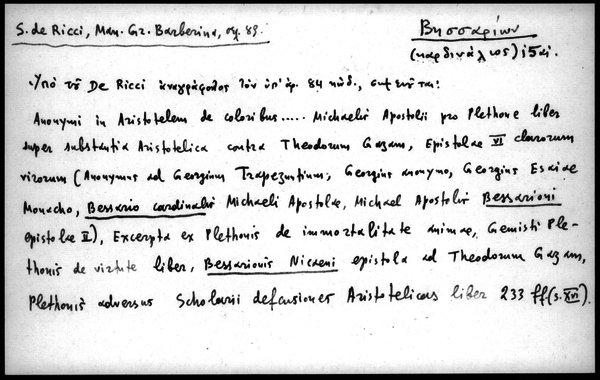 S. de Ricci, Man. Gr. Barberina, σχ. 89.
Βησσαρίων
(καρδινάλιος) 15 αἰ.
Ὑπὸ τοῦ De Ricci ἀναγράφοντος τὸν ὑπ' ἀρ. 84 κώδ., σημειοῦται:
Anonymi in Aristotelem de coloribus..... Michaelis Apostolii pro Plethone liber
super substantia Aristotelica contra Theodorum Gazam, Epistolae VI clarorum
virorum (Anonymus ad Georgium Trapezuntium; Georgius anonymo, Georgius Esaiae
Monacho, Bessario cardinalis Michaeli Apostolae, Michael Apostolis Bessarioni
epistolae II), Excerpta ex Plethonis de immortalitate animae, Gemisti Ple-
thonis de virtute liber, Bessarionis Nicaeni epistola ad Theodorum Gazam,
Plethonis adversus Scholarii defensiones Aristotelicas liber 233 ff (s. XVI).